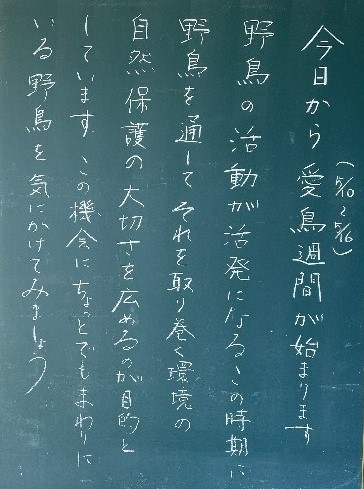 今日から愛鳥週間が始まります
(5/10~5/16)
野鳥の活動が活発になるこの時期に
野鳥を通してそれを取り巻く環境の
自然保護の大切さを広めるのが目的と
しています この機会にちょっとでもまわりに
いる野鳥を気にかけてみましょう